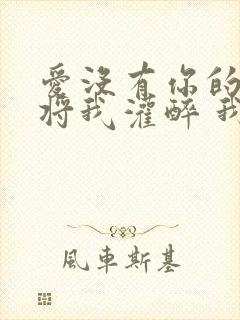 愛沒有你的
將我灌醉 我
風車斯基